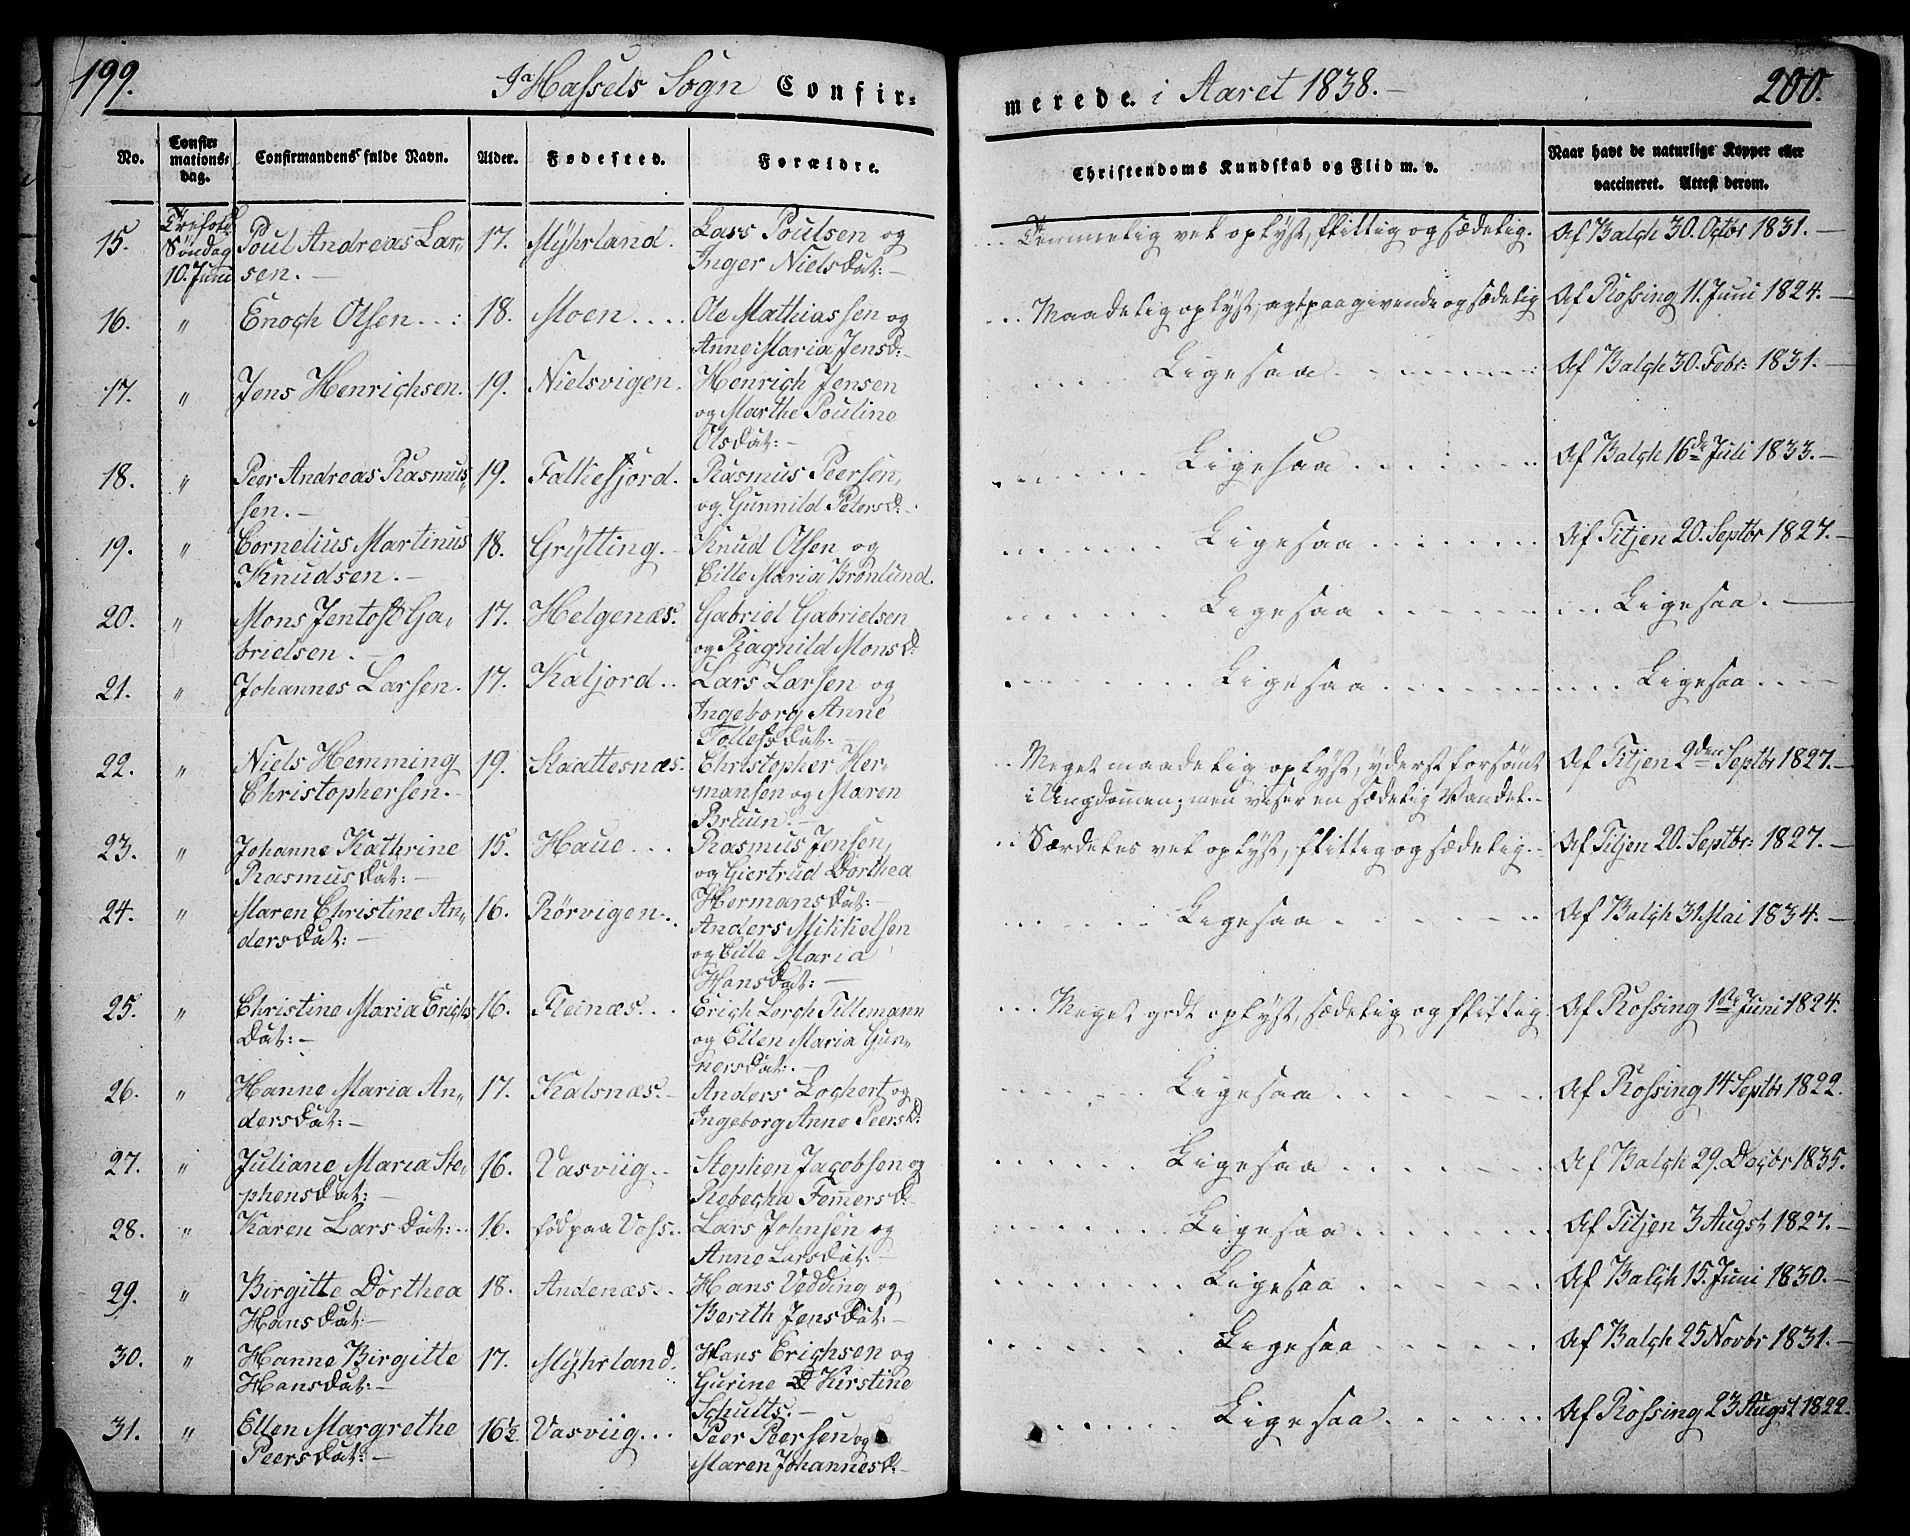 199.
I Hassels Sogn Confir-
merede. i Aaret 1838.-
200.
No.
Confir-
mations-
dag.
Confirmandens fulde Navn.
Alder.
Fødested.
Forældre.
Christendoms Kundskab og Flid m. v.
Naar havt de naturlige Kopper eller
vaccineret. Attest derom.
15. Søndag 10. Juni Poul Andreas Lar-
sen.- 17. Myhrland. Lars Poulsen og
Inger Nielsdat:- Temmelig vel oplyst, flittig og sædelig. Af Balch 30. Octbr 1831.-
16. " Enoch Olsen..: 18. Moen.... Ole Mathiassen og
Anne Maria Jensd:- Maadelig oplyst, agtpaagivende og sædelig Af Rossing 11. Juni 1824.-
17. " Jens Henrichsen. 19. Nielsvigen. Henrich Jensen
og Marthe Pouline
Olsdat:- Ligesaa Af Balch 30. Febr: 1831.-
18. " Peer Andreas Rasmus-
sen.- 19. Falkefjord. Rasmus Peersen,
og Gunnild Petersd:- Ligesaa Af Balch 16de Juli 1833.-
19. " Cornelius Martinus
Knudsen.- 18. Grytting.- Knud Olsen og
Cille Maria Brønlund. Ligesaa Af Titjen 20. Septbr 1827.-
20. " Mons Jentoft Ga-
brielsen.- 17. Helgenæs. Gabriel Gabrielsen
og Ragnild Monsd: Ligesaa Ligesaa.-
21. " Johannes Larsen. 17. Kaljord.. Lars Larsen og
Ingeborg Anne
Tollefsdat:- Ligesaa Ligesaa
22. " Niels Hemming
Christophersen.- 19. Skaattesnæs. Christopher Her-
mansen og Maren
Bruun.- Meget maadelig oplyst, yderst forsømt
i Ungdommen; men viser en sædelig Vandel.- Af Titjen 2den Septbr 1827.-
23. " Johanne Kathrine
Rasmusdat:- 15. Haue... Rasmus Jensen,
og Giertrud Dorthea
Hermansdat: Særdeles vel oplyst, flittig og sædelig.- Af Titjen 20. Septbr: 1827.-
24. " Maren Christine An-
dersdat:- 16. Rørvigen.. Anders Mikkelsen
og Cille Maria
Hansdat:- Ligesaa Af Balch 31 Mai 1834.-
25. " Christine Maria Erichs
dat:- 16. Fleinæs... Erich Lorch Tillemann
og Ellen Maria Gun-
nersdat:- Meget godt oplyst, sædelig og flittig. Af Rossing 1ste Juni 1824.
26. " Hanne Maria An-
dersdat:- 17. Kalsnæs.- Anders Lochert og
Ingeborg Anne Peersd: Ligesaa Af Rossing 14 Septbr 1822.
27. " Juliane Maria Ste-
phensdat:- 16. Vasviig.. Stephen Jacobsen og
Rebecka Femmersd:- Ligesaa Af Balch 29. Decbr 1835.
28. " Karen Larsdat:.. 16. født paa Voss.. Lars Johnsen og
Anne Larsdat:- Ligesaa Af Titjen 3 Augst 1827.-
29. " Birgitte Dorthea
Hansdat:- 18. Andenæs.. Hans Vedding og
Berith Jensdat:- Ligesaa Af Balch 15. Juni 1830.-
30. " Hanne Birgitte
Hansdat:- 17. Myhrland. Hans Erichsen og
Gurine Kirstine
Schults.- Ligesaa Af Balch 25 Novbr 1831.-
31. " Ellen Margrethe
Peersdat:- 16½ Vasviig... Peer Peersen og
Maren Johannesd:- Ligesaa Af Rossing 23 Augst 1822.